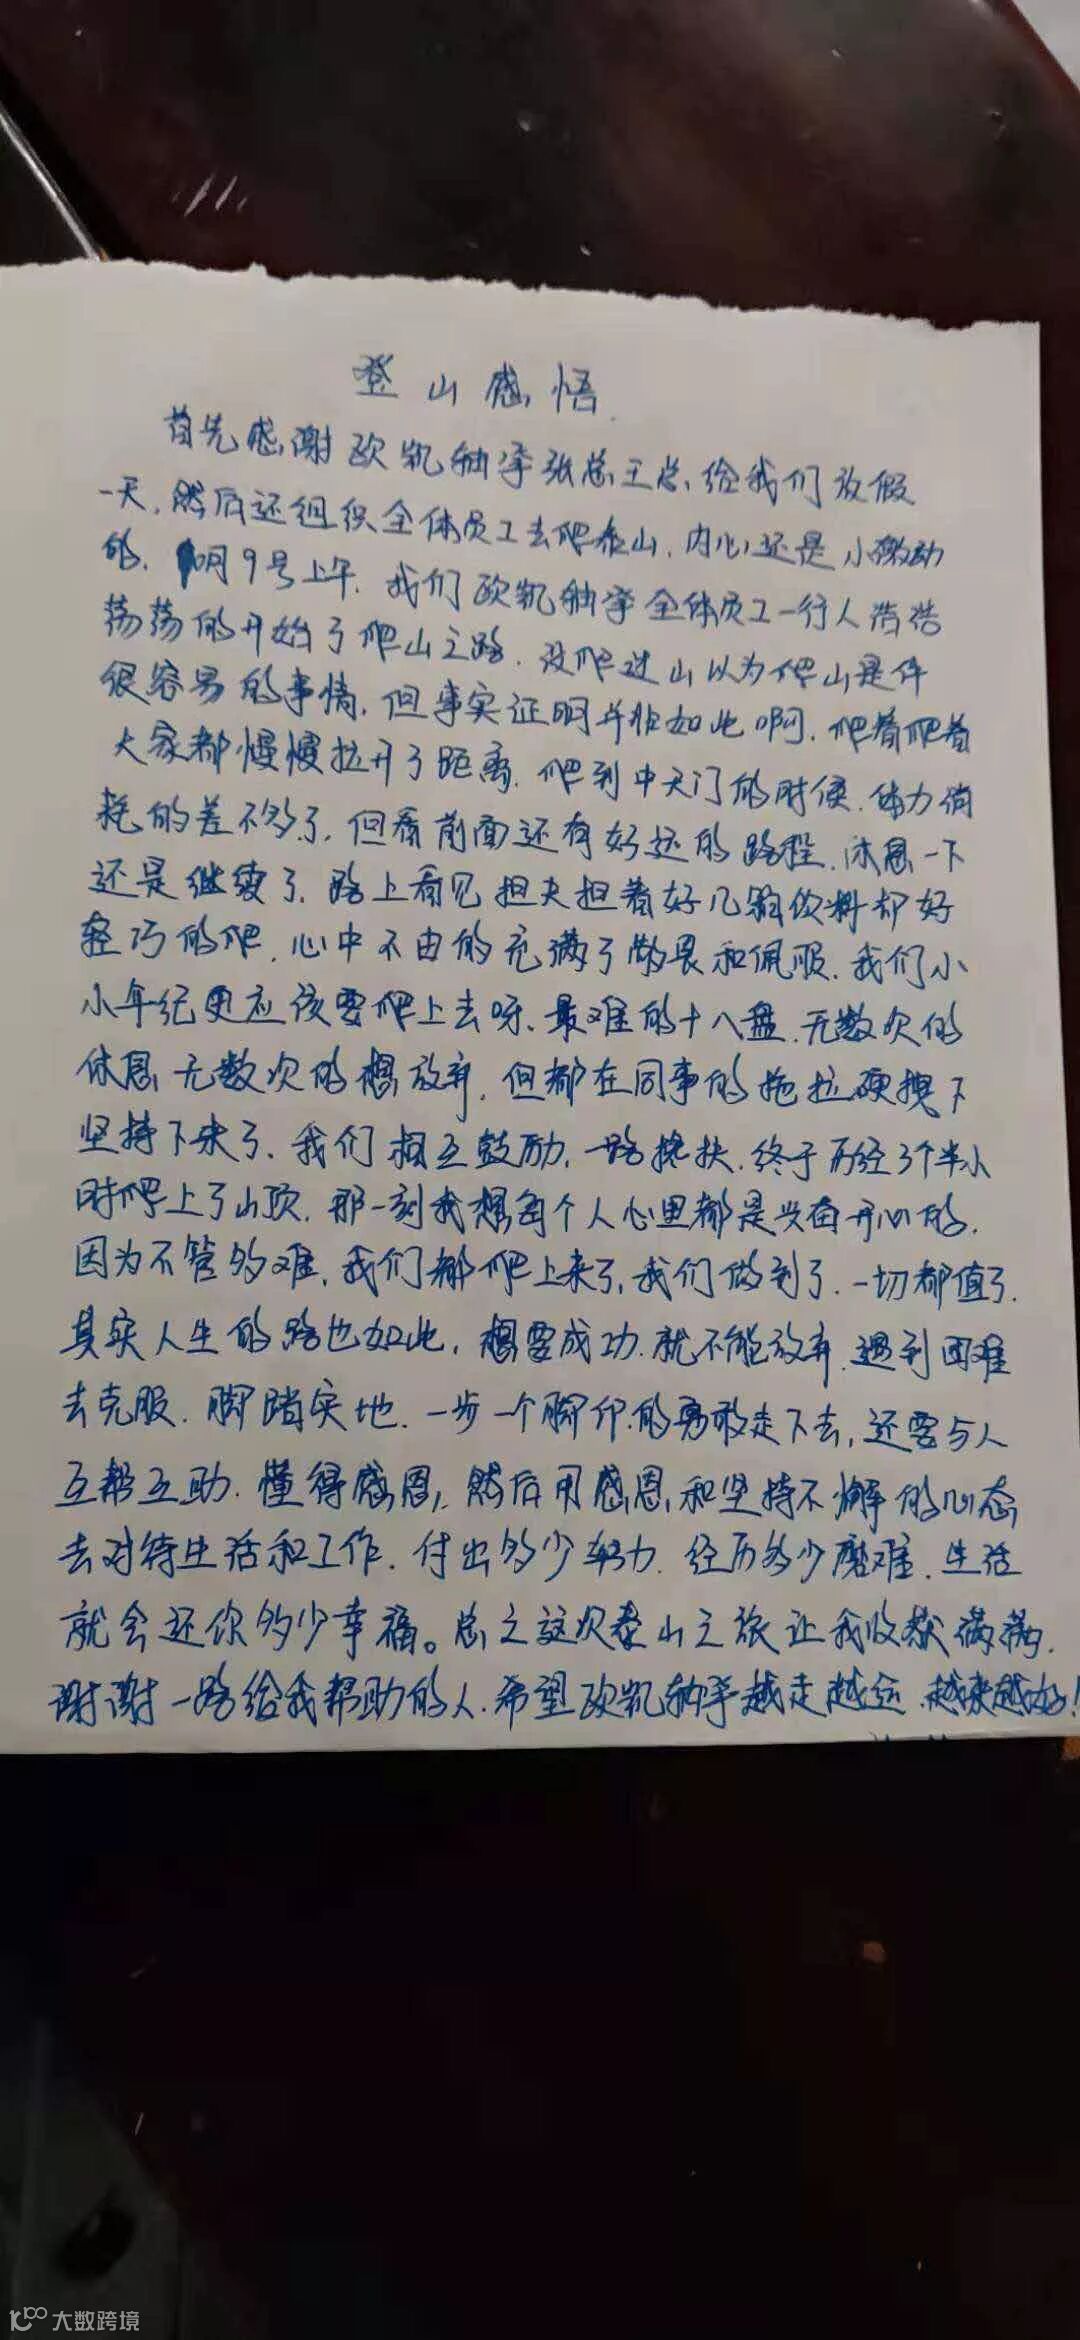 登山感悟
首先感谢欧凯轴承张总王总,给我们放假
一天,然后还组织全体员工去爬泰山,内心还是小激动
的. 月9号上午.我们欧凯轴承全体员工一行人浩浩
荡荡的开始了爬山之路.没爬过山以为爬山是件
很容易的事情.但事实证明并非如此啊.爬着爬着
大家都慢慢拉开了距离.爬到中天门的时候.体力消
耗的差不多了.但看前面还有好远的路程.休息一下
还是继续了.路上看见担夫担着好几箱饮料却好
轻巧的爬.心中不由的充满了敬畏和佩服.我们小
小年纪更应该要爬上去呀.最难的十八盘.无数次的
休息无数次的想放弃.但都在同事的拖拉硬拽下
坚持下来了.我们相互鼓励.一路搀扶.终于历经3个半小
时爬上了山顶.那一刻我想每个人心里都是兴奋开心的.
因为不管多难.我们都爬上来了,我们做到了.一切都值了.
其实人生的路也如此,想要成功.就不能放弃.遇到困难
去克服.脚踏实地.一步一个脚印的勇敢走下去,还要与人
互帮互助.懂得感恩,然后用感恩和坚持不懈的心态
去对待生活和工作.付出多少努力.经历多少磨难.生活
就会还你多少幸福。总之这次泰山之旅让我收获满满.
谢谢一路给我帮助的人.希望欧凯轴承越走越远.越来越好!
大数跨境